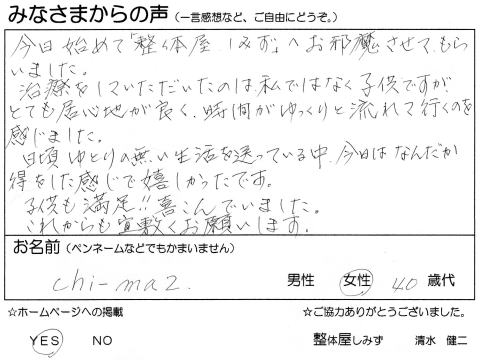 みなさまからの声（一言感想など、ご自由にどうぞ。）
今日始めて「整体屋 しみず」へお邪魔させてもら
いました。
治療をしていただいたのは私ではなく子供ですが
とても居心地が良く、時間がゆっくりと流れて行くのを
感じました。
日頃ゆとりの無い生活を送っている中、今日はなんだか
得をした感じで嬉しかったです。
子供も満足!!喜こんでいました。
これからも宜敷くお願いします。
お名前（ペンネームなどでもかまいません）
chi-maz. 男性 女性 40 歳代
☆ホームページへの掲載 ☆ご協力ありがとうございました。
YES NO 整体屋しみず 清水 健二